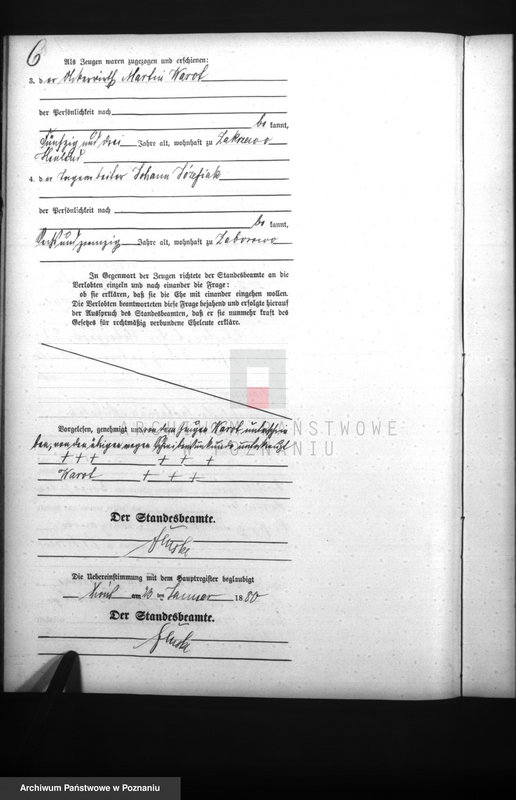 6
Als Zeugen waren zugezogen und erschienen:
3. der Ackerwirth Martin Warot
der Persönlichkeit nach
be kannt,
fünfzig und drei Jahre alt, wohnhaft zu Zakrzewo
Hauland
4. der Johann Józefiak
der Persönlichkeit nach
be kannt,
Jahre alt, wohnhaft zu Zaborowo
In Gegenwart der Zeugen richtete der Standesbeamte an die
Verlobten einzeln und nach einander die Frage:
ob sie erklären, daß sie die Ehe mit einander eingehen wollen.
Die Verlobten beantworteten diese Frage bejahend und erfolgte hierauf
der Ausspruch des Standesbeamten, daß er sie nunmehr kraft des
Gesetzes für rechtmäßig verbundene Eheleute erkläre.
ARCHIWUM PAŃSTWOWE
W POZNANIU
Vorgelesen, genehmigt und von dem Zeugen Warot unterschrie
ben, von den übrigen wegen Schreibensunkunde unterkreuzt
+ + + + + +
Warot + + +
Der Standesbeamte.
Die Uebereinstimmung mit dem Hauptregister beglaubigt
am 20 ten Januar 1880
Der Standesbeamte.
Archiwum Państwowe w Poznaniu